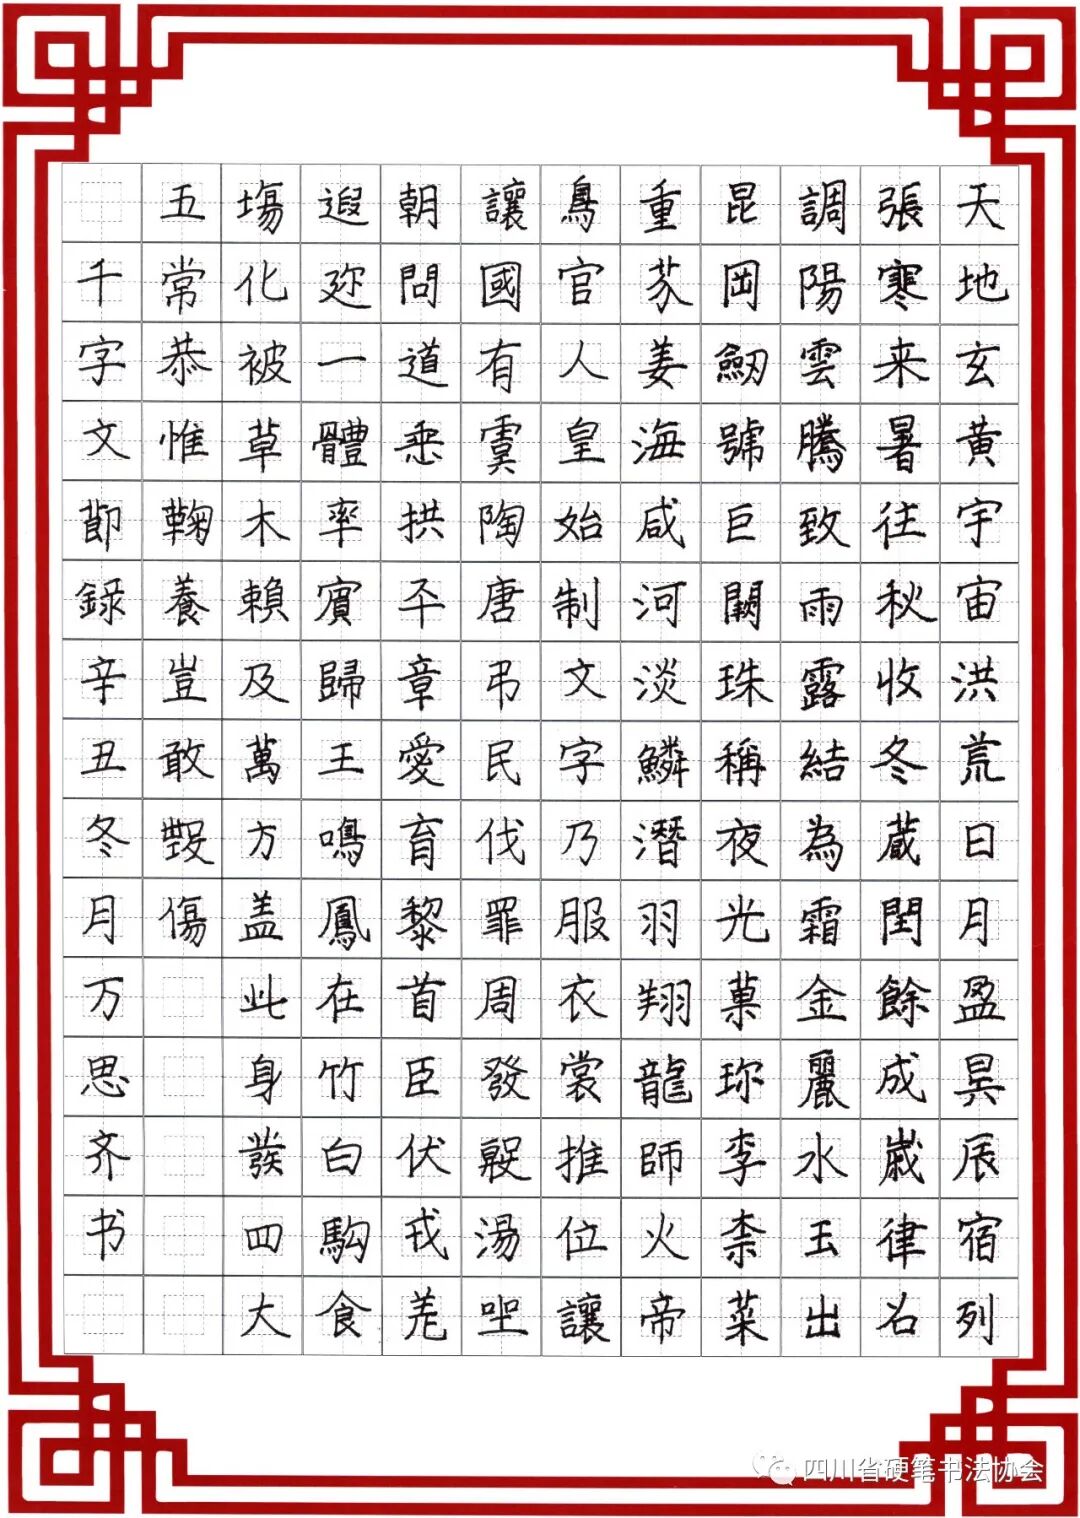 天地玄黄宇宙洪荒日月盈昃辰宿列
張寒来暑往秋收冬蔵閏餘成歲律吕
調陽雲騰致雨露結為霜金麗水玉出
崑岡劒號巨闕珠稱夜光菓珎李柰菜
重芥姜海咸河淡鱗潛羽翔龍師火帝
鳥官人皇始制文字乃服衣裳推位讓
讓國有虞陶唐弔民伐罪周發殷湯坐
朝問道垂拱平章愛育黎首臣伏戎羌
遐迩一體率賓歸王鳴鳳在竹白駒食
場化被草木賴及萬方盖此身髮四大
五常恭惟鞠養豈敢毀傷
千字文節録辛丑冬月万思齐书
四川省硬笔书法协会